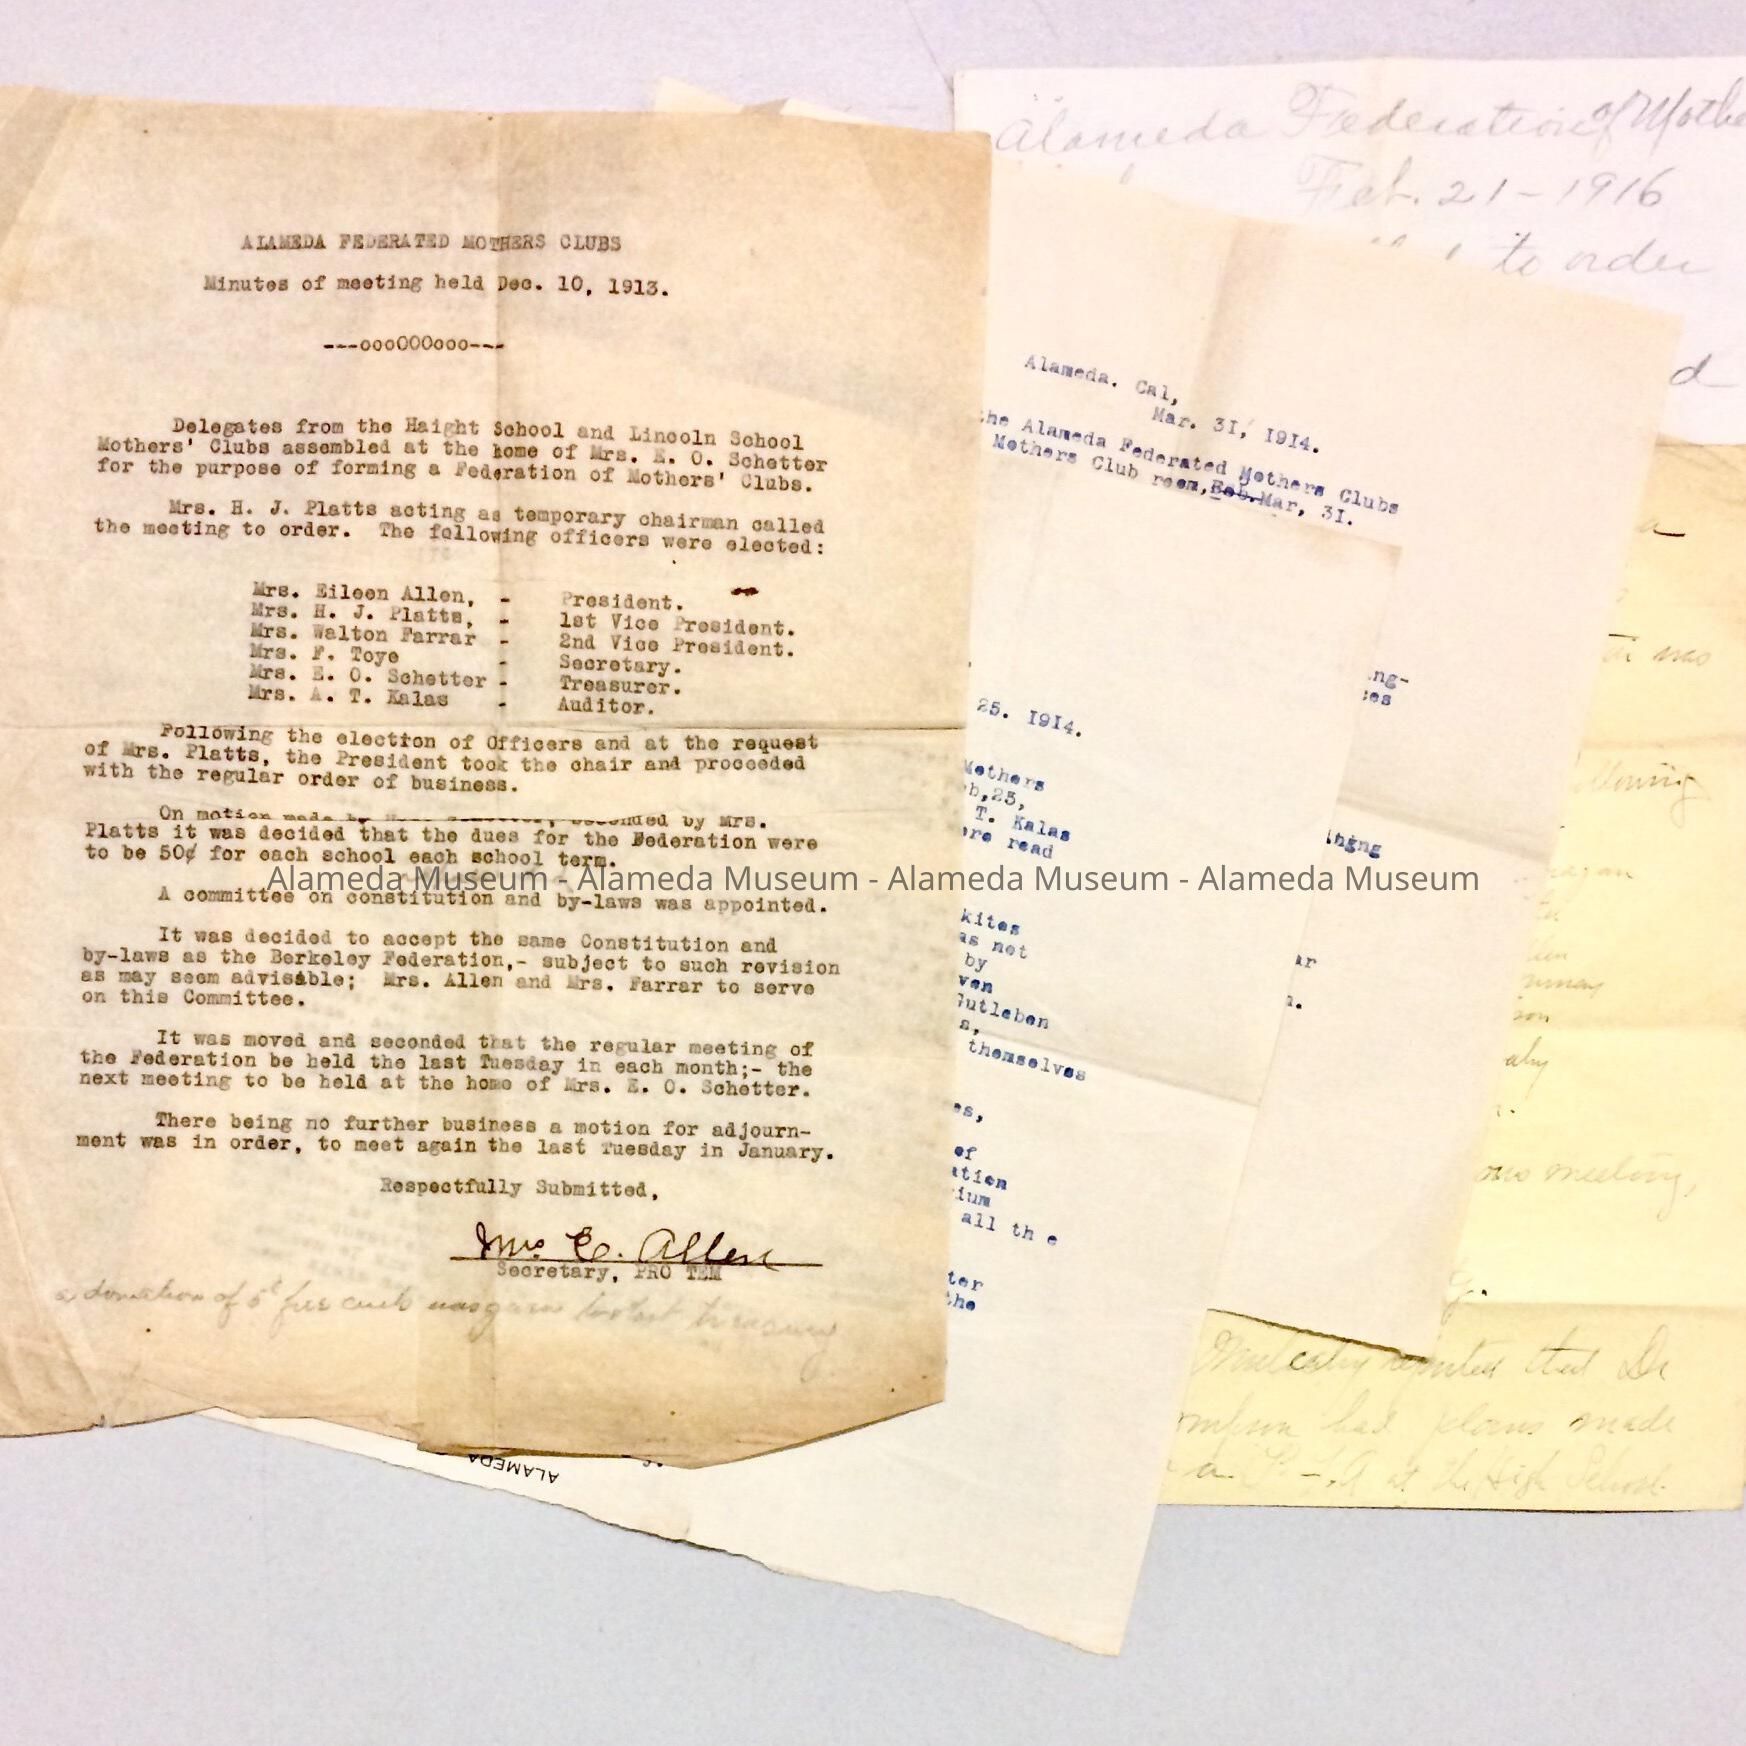 ALAMEDA FEDERATED MOTHERS CLUBS
Minutes of meeting held Dec. 10, 1913.
---oooOOOooo---
Delegates from the Haight School and Lincoln School
Mothers' Clubs assembled at the home of Mrs. E. O. Schetter
for the purpose of forming a Federation of Mothers' Clubs.
Mrs. H. J. Platts acting as temporary chairman called
the meeting to order. The following officers were elected:
Mrs. Eileen Allen, - President.
Mrs. H. J. Platts, - 1st Vice President.
Mrs. Walton Farrar - 2nd Vice President.
Mrs. F. Toye - Secretary.
Mrs. E. O. Schetter - Treasurer.
Mrs. A. T. Kalas - Auditor.
Following the election of Officers and at the request
of Mrs. Platts, the President took the chair and proceeded
with the regular order of business.
On motion made by seconded by Mrs.
Platts it was decided that the dues for the Federation were
to be 50¢ for each school each school term.
A committee on constitution and by-laws was appointed.
It was decided to accept the same Constitution and
by-laws as the Berkeley Federation,- subject to such revision
as may seem advisable; Mrs. Allen and Mrs. Farrar to serve
on this Committee.
It was moved and seconded that the regular meeting of
the Federation be held the last Tuesday in each month;- the
next meeting to be held at the home of Mrs. E. O. Schetter.
There being no further business a motion for adjourn-
ment was in order, to meet again the last Tuesday in January.
Respectfully Submitted,
Mrs E. Allen
Secretary, PRO TEM
a donation of 5¢ five cents was given to start treasury
Alameda Museum - Alameda Museum - Alameda Museum - Alameda Museum
ALAMEDA
25. 1914.
Mothers
eb,25,
T. Kalas
ere read
kites
as not
by
ven
Gutleben
a,
themselves
es,
of
ation
ium
all th e
ter
the
Alameda. Cal,
Mar. 31, 1914.
the Alameda Federated Mothers Clubs
Mothers Club room, Feb. Mar, 31.
ng-
es
hgng
ar
Alameda Federation of Mothe
Feb. 21 - 1916
to order
d
was
llowing
ous meeting,
Mulcahy reported that Dr
ompson had plans made
a P.-T.A at the High School.